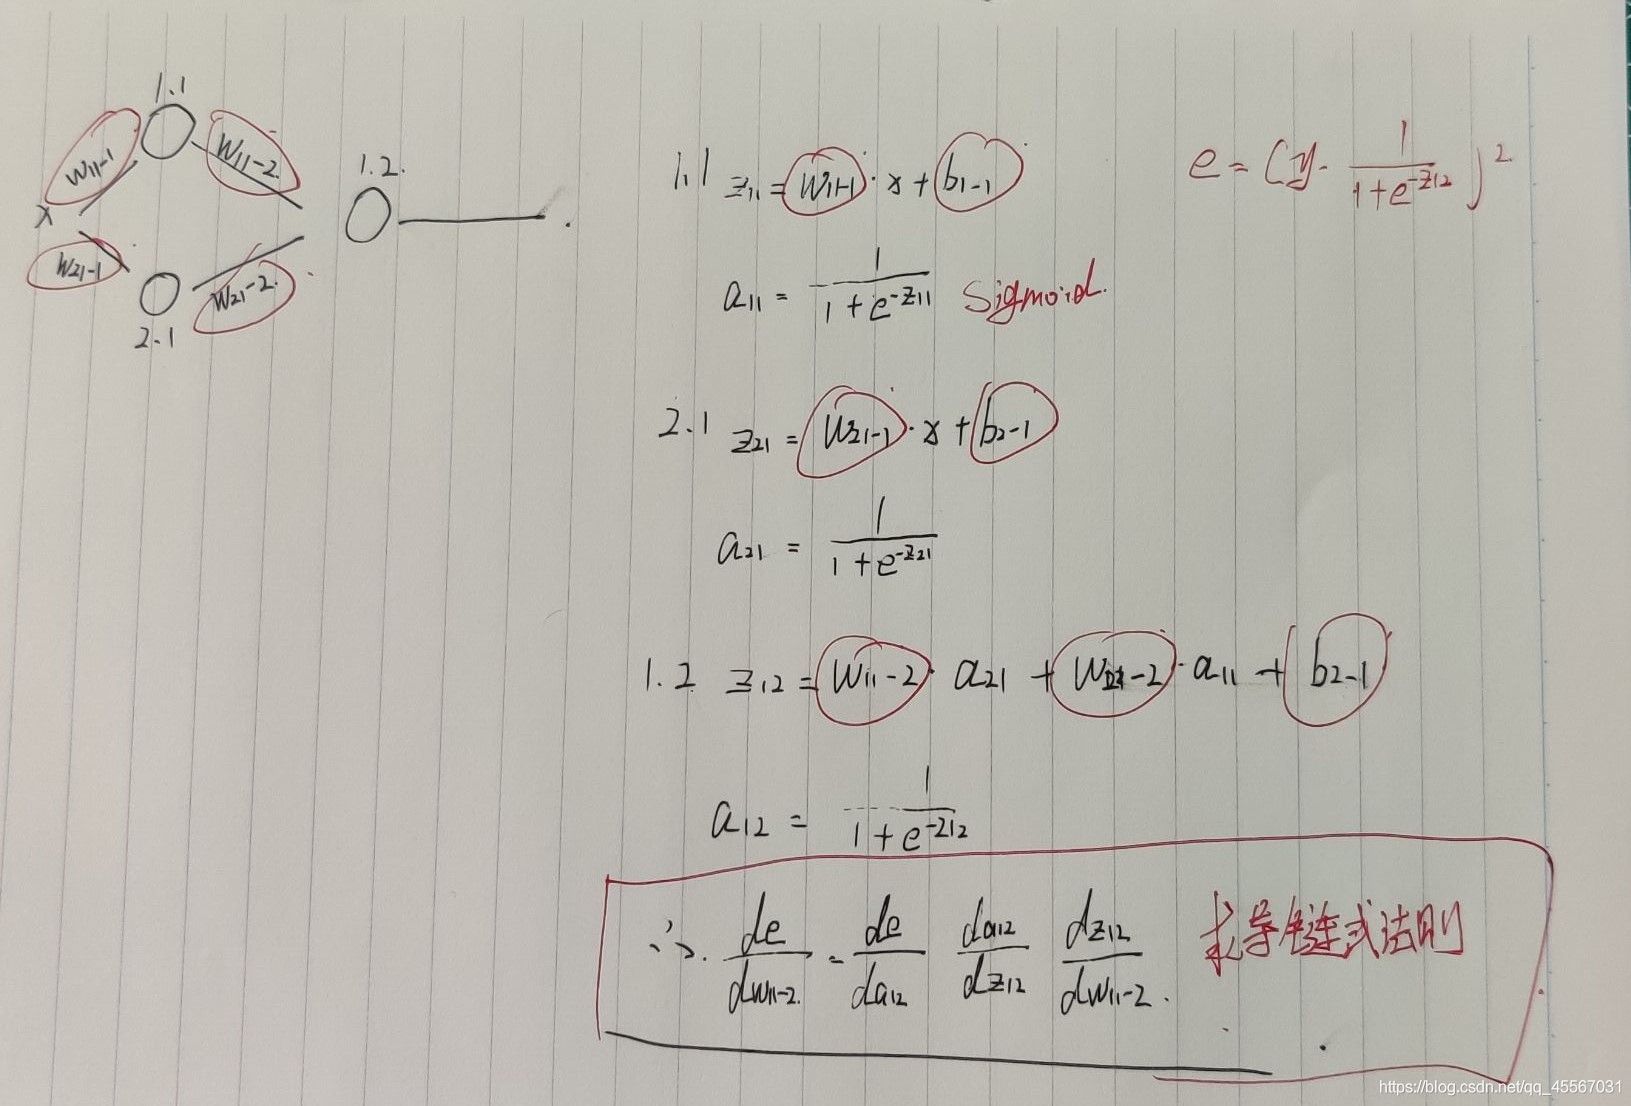 1.1
w11-1
w11-2
1.2.
x
w21-1
w21-2
2.1
1.1 z11 = w11-1 · x + b1-1
e = (y - 1/(1+e^-z12))^2
a11 = 1/(1+e^-z11) Sigmoid.
2.1 z21 = w21-1 · x + b2-1
a21 = 1/(1+e^-z21)
1.2 z12 = w11-2 · a21 + w21-2 · a11 + b2-1
a12 = 1/(1+e^-z12)
∴ de/dw11-2 = de/da12 da12/dz12 dz12/dw11-2 . 求导链式法则
https://blog.csdn.net/qq_45567031